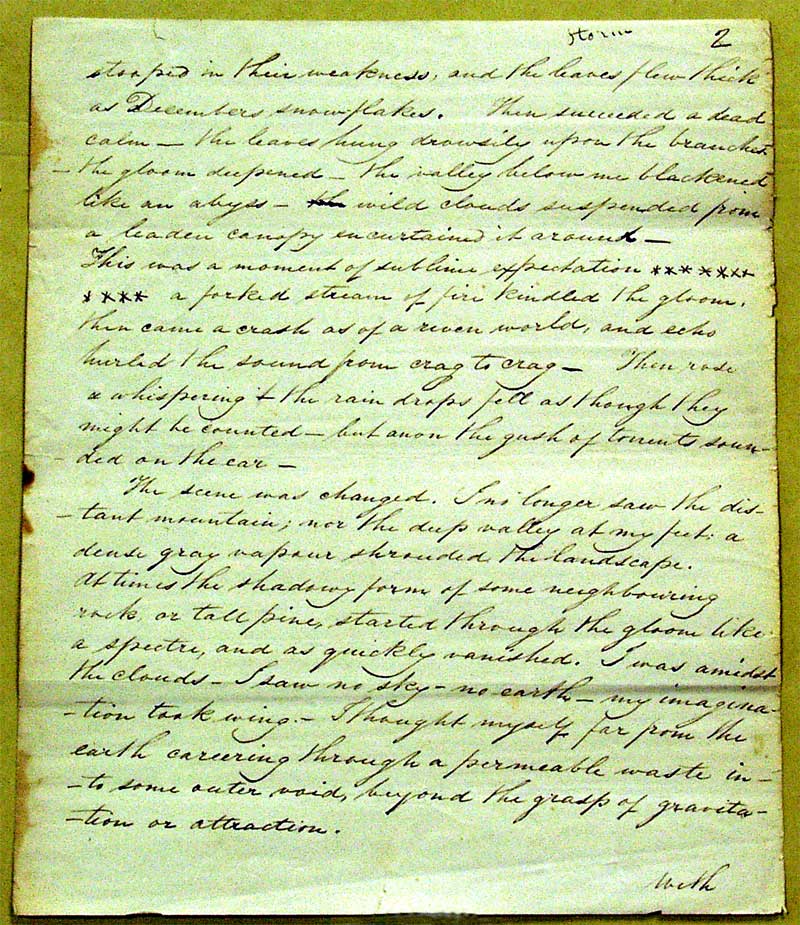 storm 2
stooped in their weakness, and the leaves flew thick
as Decembers snowflakes. Then succeeded a dead
calm — the leaves hung drowsily upon the branches
- the gloom deepened — the valley below me blackened
like an abyss — the wild clouds suspended from
a leaden canopy encurtained it around —
This was a moment of sublime expectation *******
**** a forked stream of fire kindled the gloom,
then came a crash as of a riven world, and echo
hurled the sound from crag to crag — Then rose
a whispering & the rain drops fell as though they
might be counted — but anon the gush of torrents soun-
-ded on the ear —
The scene was changed. I no longer saw the dis-
-tant mountain; nor the deep valley at my feet: a
dense gray vapour shrouded the landscape.
At times the shadowy form of some neighbouring
rock, or tall pine, started through the gloom like
a spectre, and as quickly vanished. I was amidst
the clouds — I saw no sky — no earth — my imagina-
-tion took wing. — I thought myself far from the
earth careering through a permeable waste in-
-to some outer void, beyond the grasp of gravita-
-tion or attraction.
with